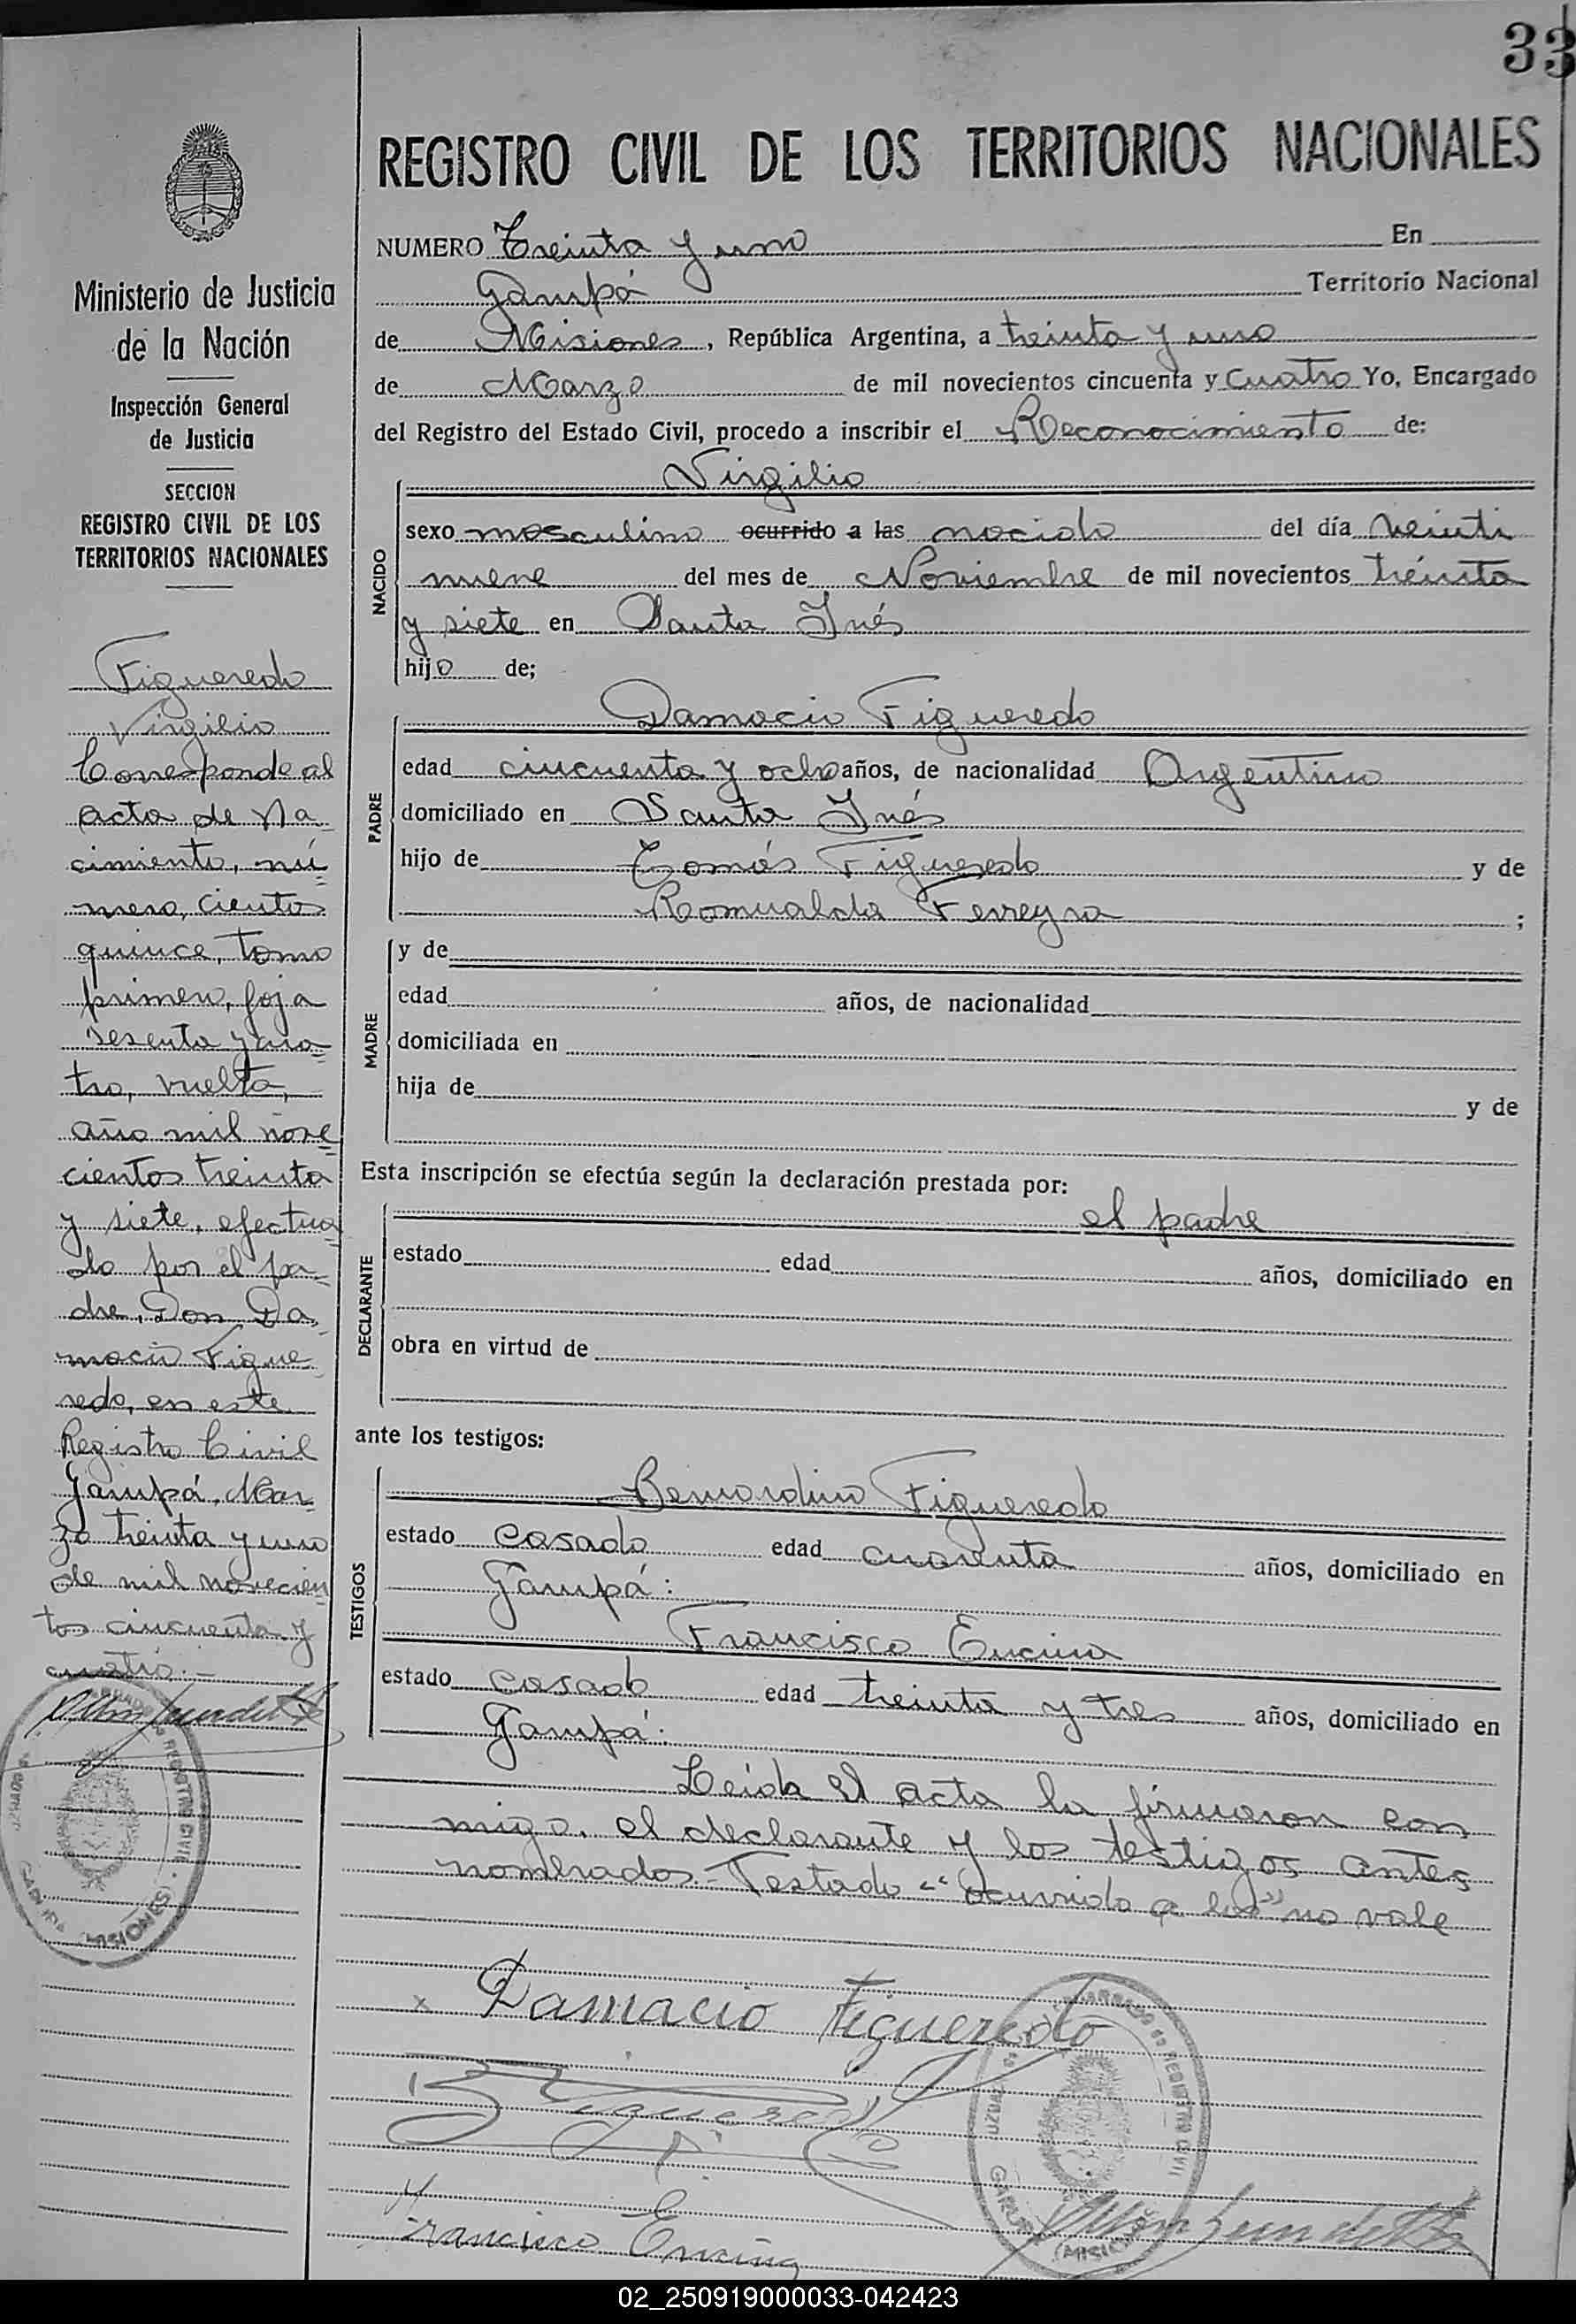 33
REGISTRO CIVIL DE LOS TERRITORIOS NACIONALES
NUMERO Treinta y uno En
Garupá Territorio Nacional
de Misiones, República Argentina, a treinta y uno
de Marzo de mil novecientos cincuenta y Cuatro Yo, Encargado
del Registro del Estado Civil, procedo a inscribir el Reconocimiento de:
NACIDO
Virgilio
sexo masculino ocurrido a las nacido del día veinti
nueve del mes de Noviembre de mil novecientos treinta
y siete en Santa Inés
hijo de;
PADRE
Damacio Figueredo
edad cincuenta y ocho años, de nacionalidad Argentino
domiciliado en Santa Inés
hijo de Tomás Figueredo y de
Romualda Ferreyra ;
MADRE
y de
edad años, de nacionalidad
domiciliada en
hija de y de
Esta inscripción se efectúa según la declaración prestada por:
DECLARANTE
el padre
estado edad años, domiciliado en
obra en virtud de
ante los testigos:
TESTIGOS
Bernardino Figueredo
estado casado edad cuarenta años, domiciliado en
Garupá:
Francisco Encina
estado casado edad treinta y tres años, domiciliado en
Garupá:
Leida el acta la firmaron con
migo, el declarante y los testigos antes
nombrados.- Testado "ocurrido a las" no vale
Damacio Figueredo
Figueredo
Francisco Encina
Ministerio de Justicia
de la Nación
Inspección General
de Justicia
SECCION
REGISTRO CIVIL DE LOS
TERRITORIOS NACIONALES
Figueredo
Virgilio
Corresponde al
acta de Na
cimiento, nú
mero, ciento
quince, tomo
primero, foja
sesenta y cua
tro, vuelta,
año mil nove
cientos treinta
y siete, efectua
do por el pa
dre, Don Da
macio Figue
redo, en este
Registro Civil
Garupá, Mar
zo treinta y uno
de mil novecien
tos cincuenta y
cuatro.-
REGISTRO CIVIL
(MISIONES)
02_250919000033-042423